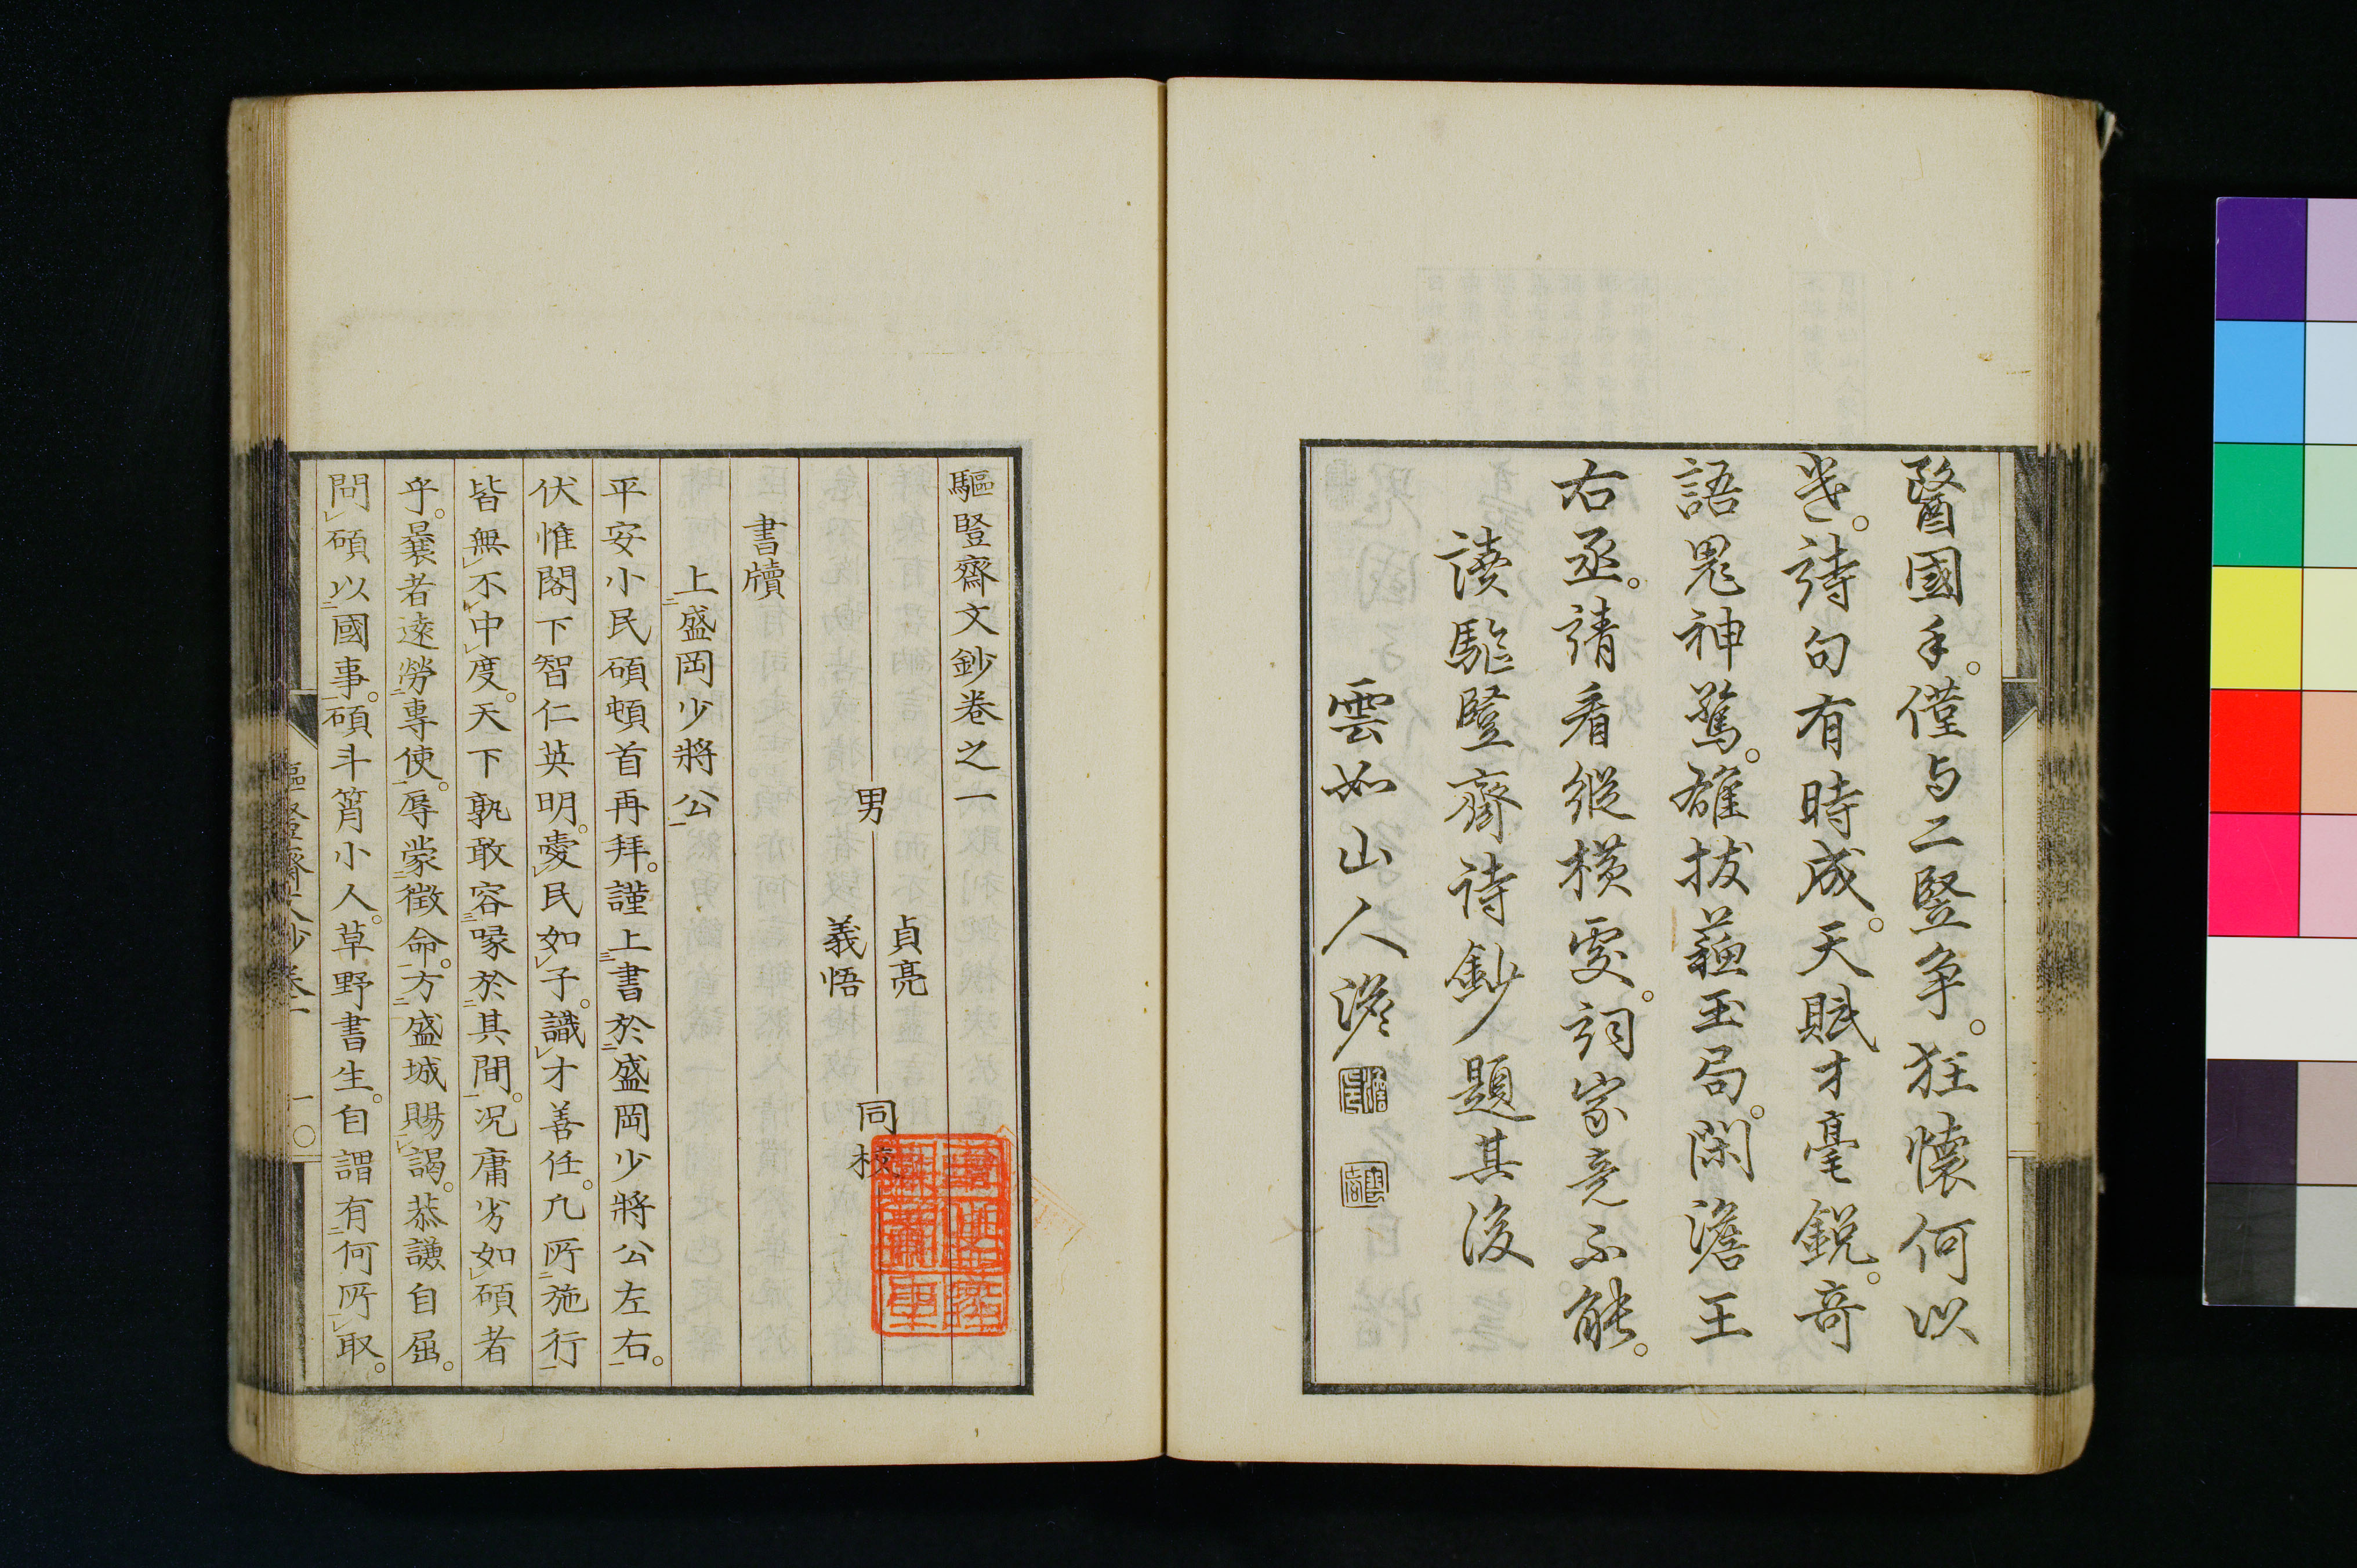 醫國手。僅与二竪争。狂懷何以
先。詩句有時成。天賦才毫銳。奇
語鬼神驚。雄拔蘓玉局。閑澹王
右丞。請看縱横處。詞家竟不能。
讀驅竪齋詩鈔題其後
雲如山人澹
驅竪齋文鈔卷之一
男
貞亮
義悟
同校
書牘
上盛岡少將公
平安小民碩頓首再拜。謹上書於盛岡少將公左右。
伏惟閣下智仁英明。愛民如子。識才善任。凢所施行
皆無不中度。天下孰敢容喙於其間。况庸劣如碩者
乎。曩者遠勞專使。辱蒙徴命。方盛城賜謁。恭謙自屈。
問碩以國事。碩斗筲小人。草野書生。自謂有何所取。
驅竪齋文鈔卷一
一〇